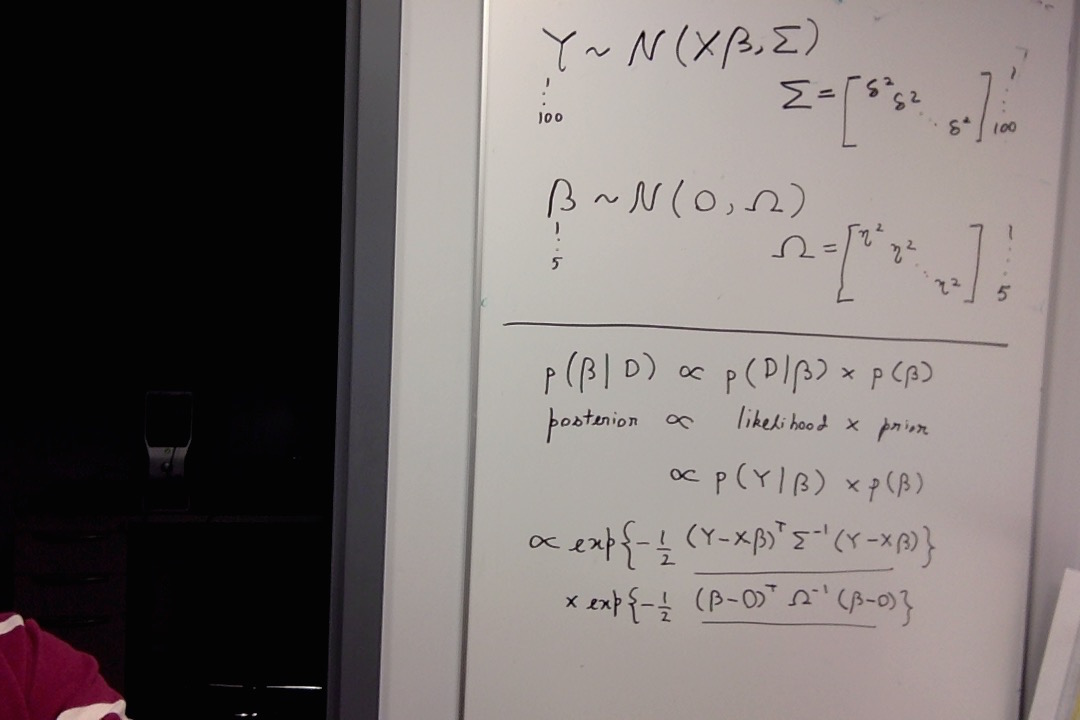 Y ~ N(Xβ, Σ)
1
⋮
100
Σ = [δ² δ² ⋱ δ²] 1 ⋮ 100
β ~ N(0, Ω)
1
⋮
5
Ω = [η² η² ⋱ η²] 1 ⋮ 5
p(β|D) ∝ p(D|β) × p(β)
posterior ∝ likelihood × prior
∝ p(Y|β) × p(β)
∝ exp{-½ (Y-Xβ)ᵀ Σ⁻¹ (Y-Xβ)}
× exp{-½ (β-0)ᵀ Ω⁻¹ (β-0)}